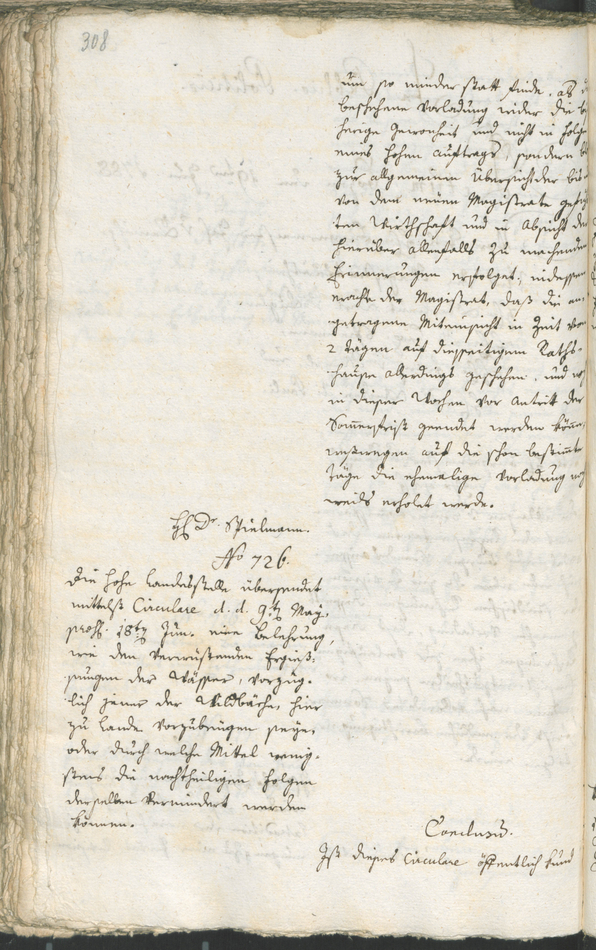 308
um so minder statt finde, als d
beschehene Vorladung wider die b
herige Gewonheit und nicht in Folge
eines hohen Auftrags, sondern
zur allgemeinen Übersicht der bis
von dem neuen Magistrate gefüh
ten Wirthschaft und in Absicht der
hierüber allenfalls zu machenden
Erinnerungen erfolget; indessen
erachte der Magistrat, daß die an
getragene Miteinsicht in Zeit von
2 tägen auf diesseitigem Raths-
hause allerdings geschehen, und
in dieser Wochen vor Antritt der
Somerfrist geendet werden könne,
weßwegen auf die schon bestimte
täge die ehemalige Vorladung
erholet werde.
H Dr. Spielmann.
No 726.
Die hohe Landesstelle übersendet
mittelst Circulare d. d. 9ten May,
pros. 18ten Jun. eine Belehrung,
wie den verwüstenden Ergieß-
sungen der Wässer, vorzüg-
lich jener der Wildbäche, hier
zu Lande vorzubeugen seye,
oder durch welche Mittel wenig-
stens die nachtheiligen Folgen
derselben vermindert werden
können.
Conclusum.
Ist dieses Circulare öffentlich kund